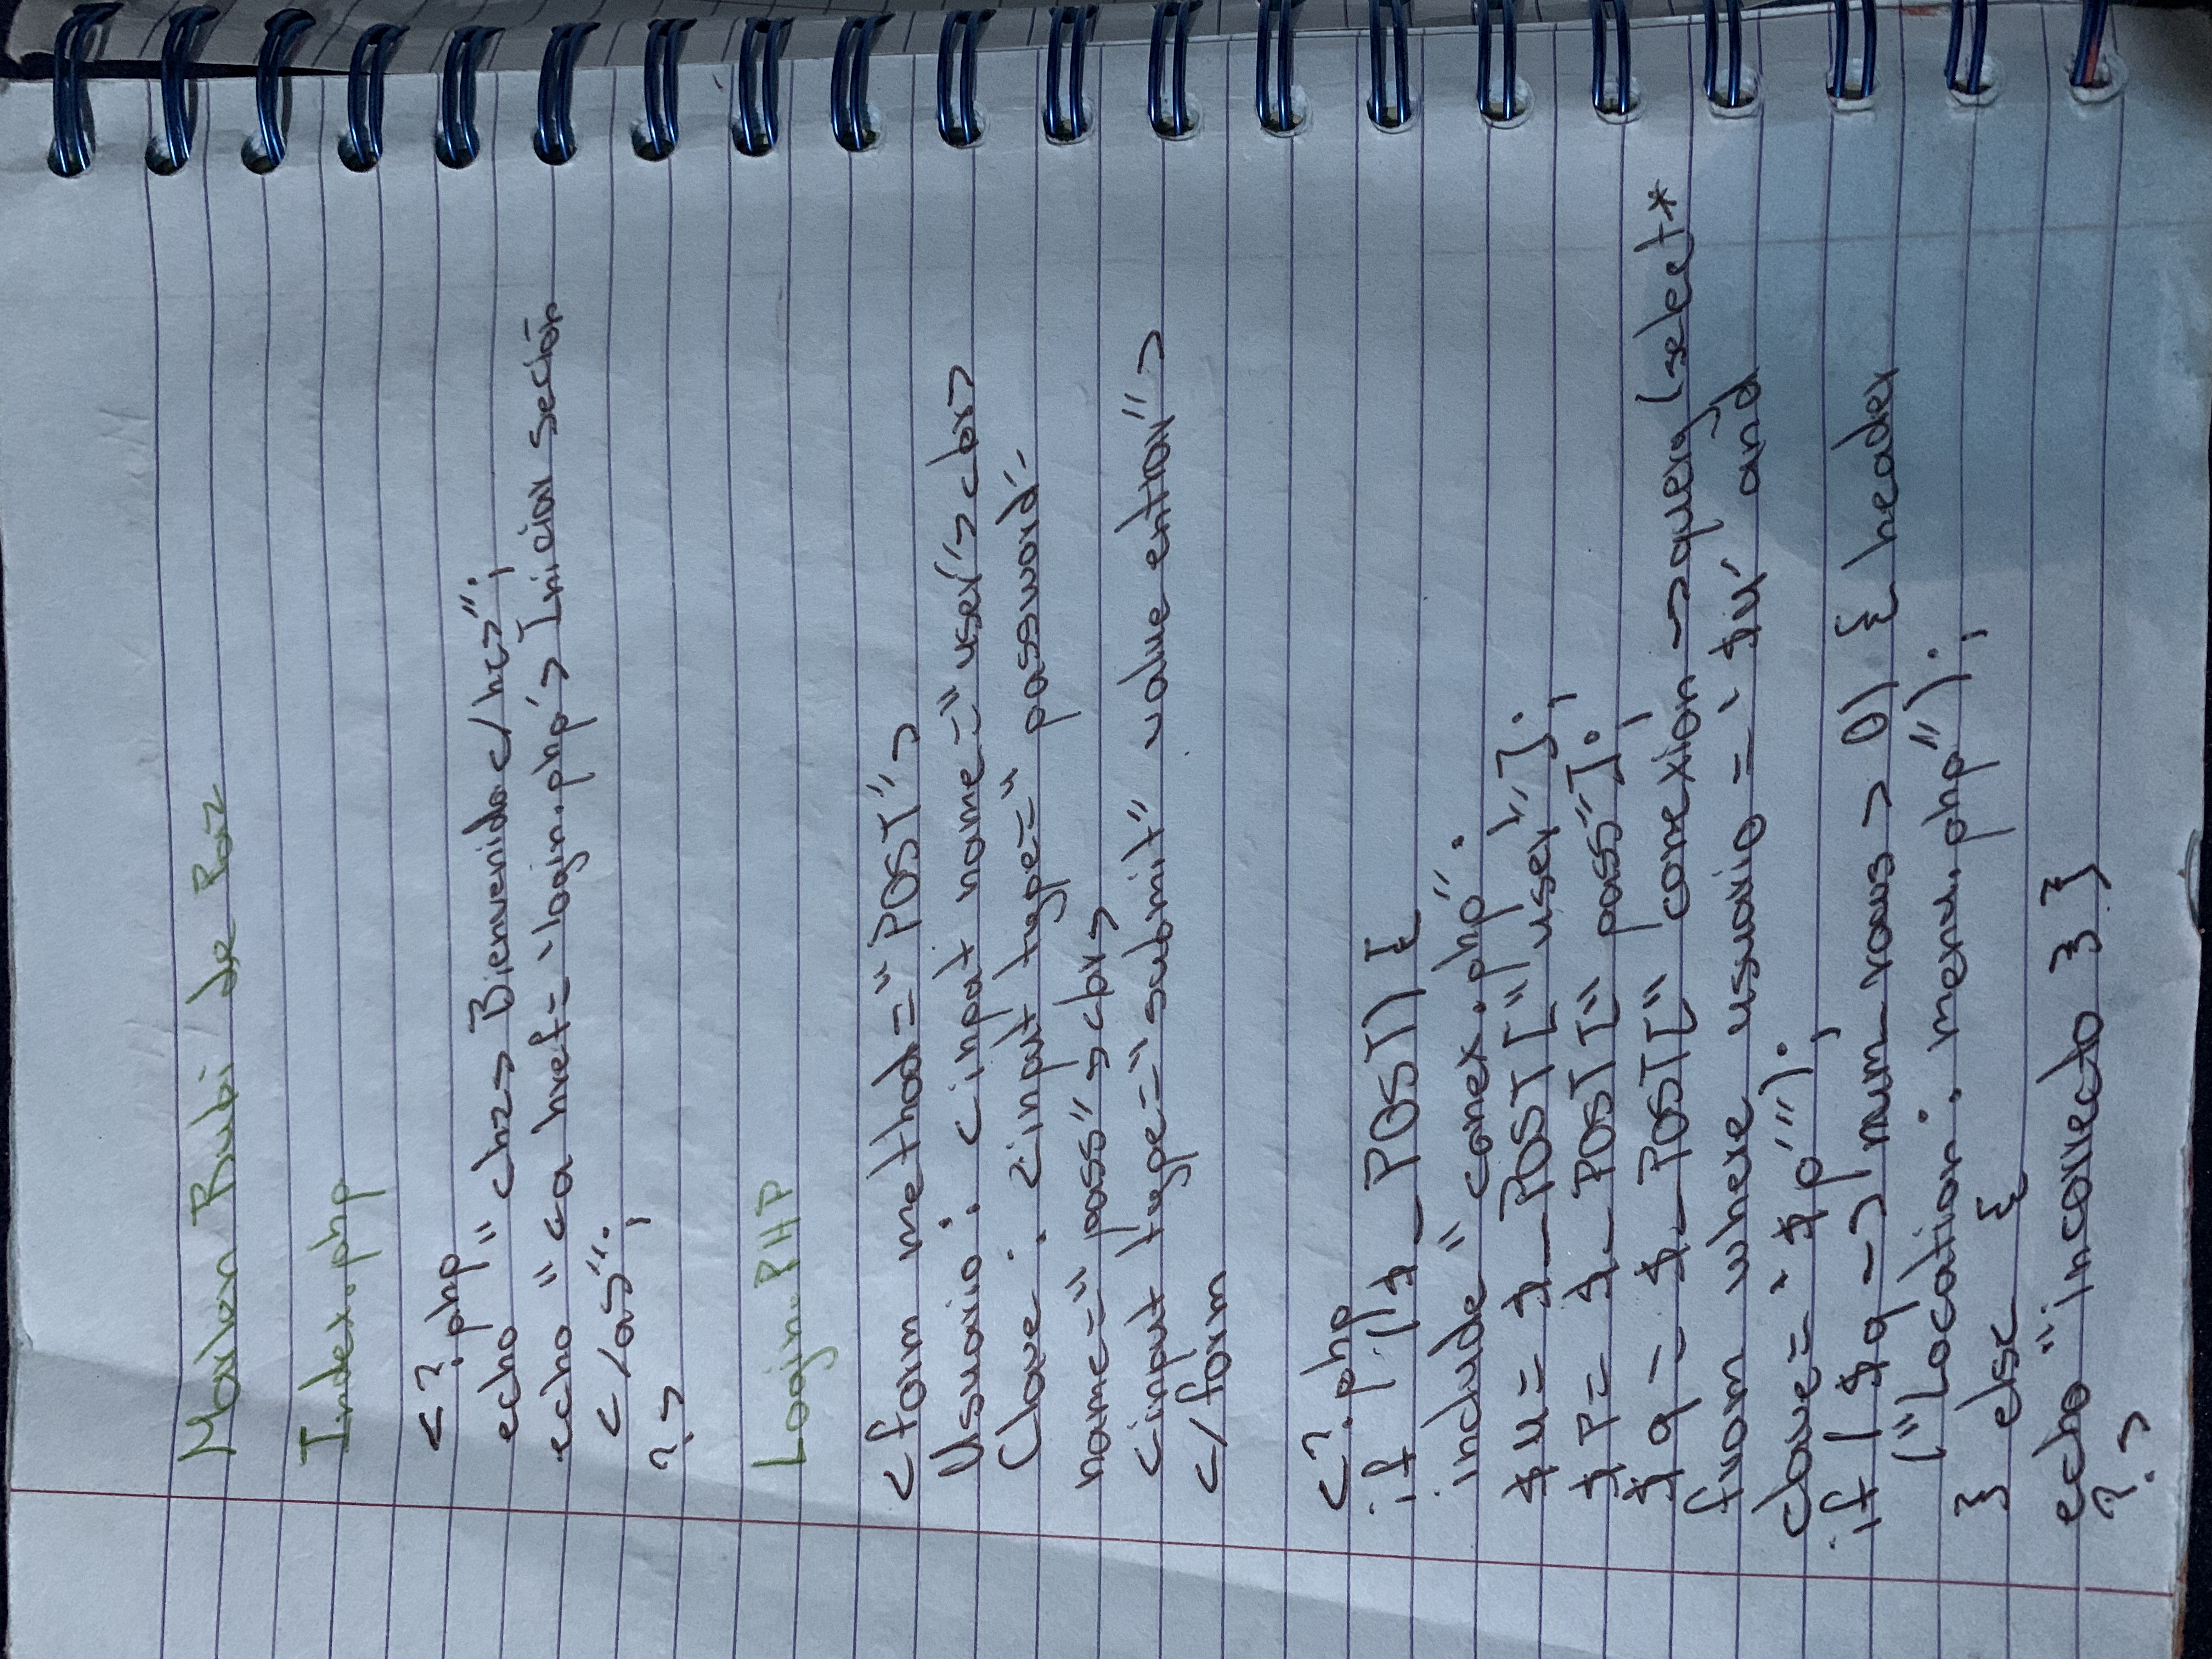 Marlen Rubi de Paz
Index.php
<?.php
echo "<h2> Bienvenida</h2>";
echo "<a href='login.php'> Inicial sectón
</a>";
?>
Login.PHP
<form method="POST">
Usuario: <input name="user"><br>
Clave: <input type="password"
name="pass"><br>
<input type="submit" value entrar">
</form
<?.php
if ($_POST) {
include "conex.php".
$u= $_POST["user"];
$P= $_POST["pass"];
$q = $_POST[" conexion ->query (select*
from where usuario = '$u' and
clave='$p'");
if ($q -> num_rows > 0) { header
("Location: menu.php");
} else {
echo "incorrecto } }
?>